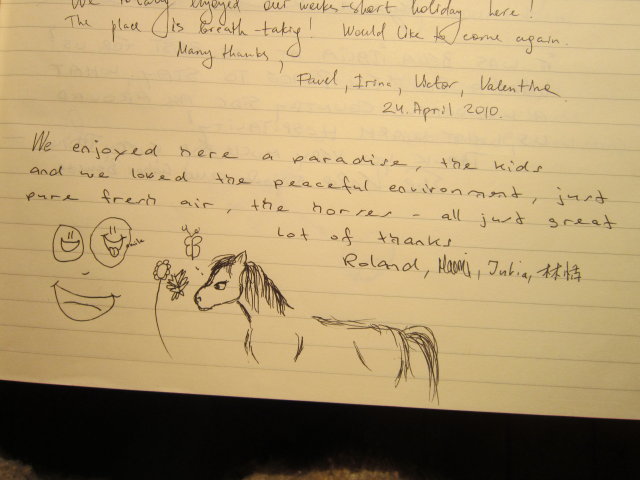 We totally enjoyed our weeks-short holiday here!
The place is breath-taking! Would like to come again.
Many thanks,
Pavel, Irina, Victor, Valentina
24. April 2010.
We enjoyed here a paradise, the kids
and we loved the peaceful environment, just
pure fresh air, the horses - all just great
Lot of thanks
Roland,